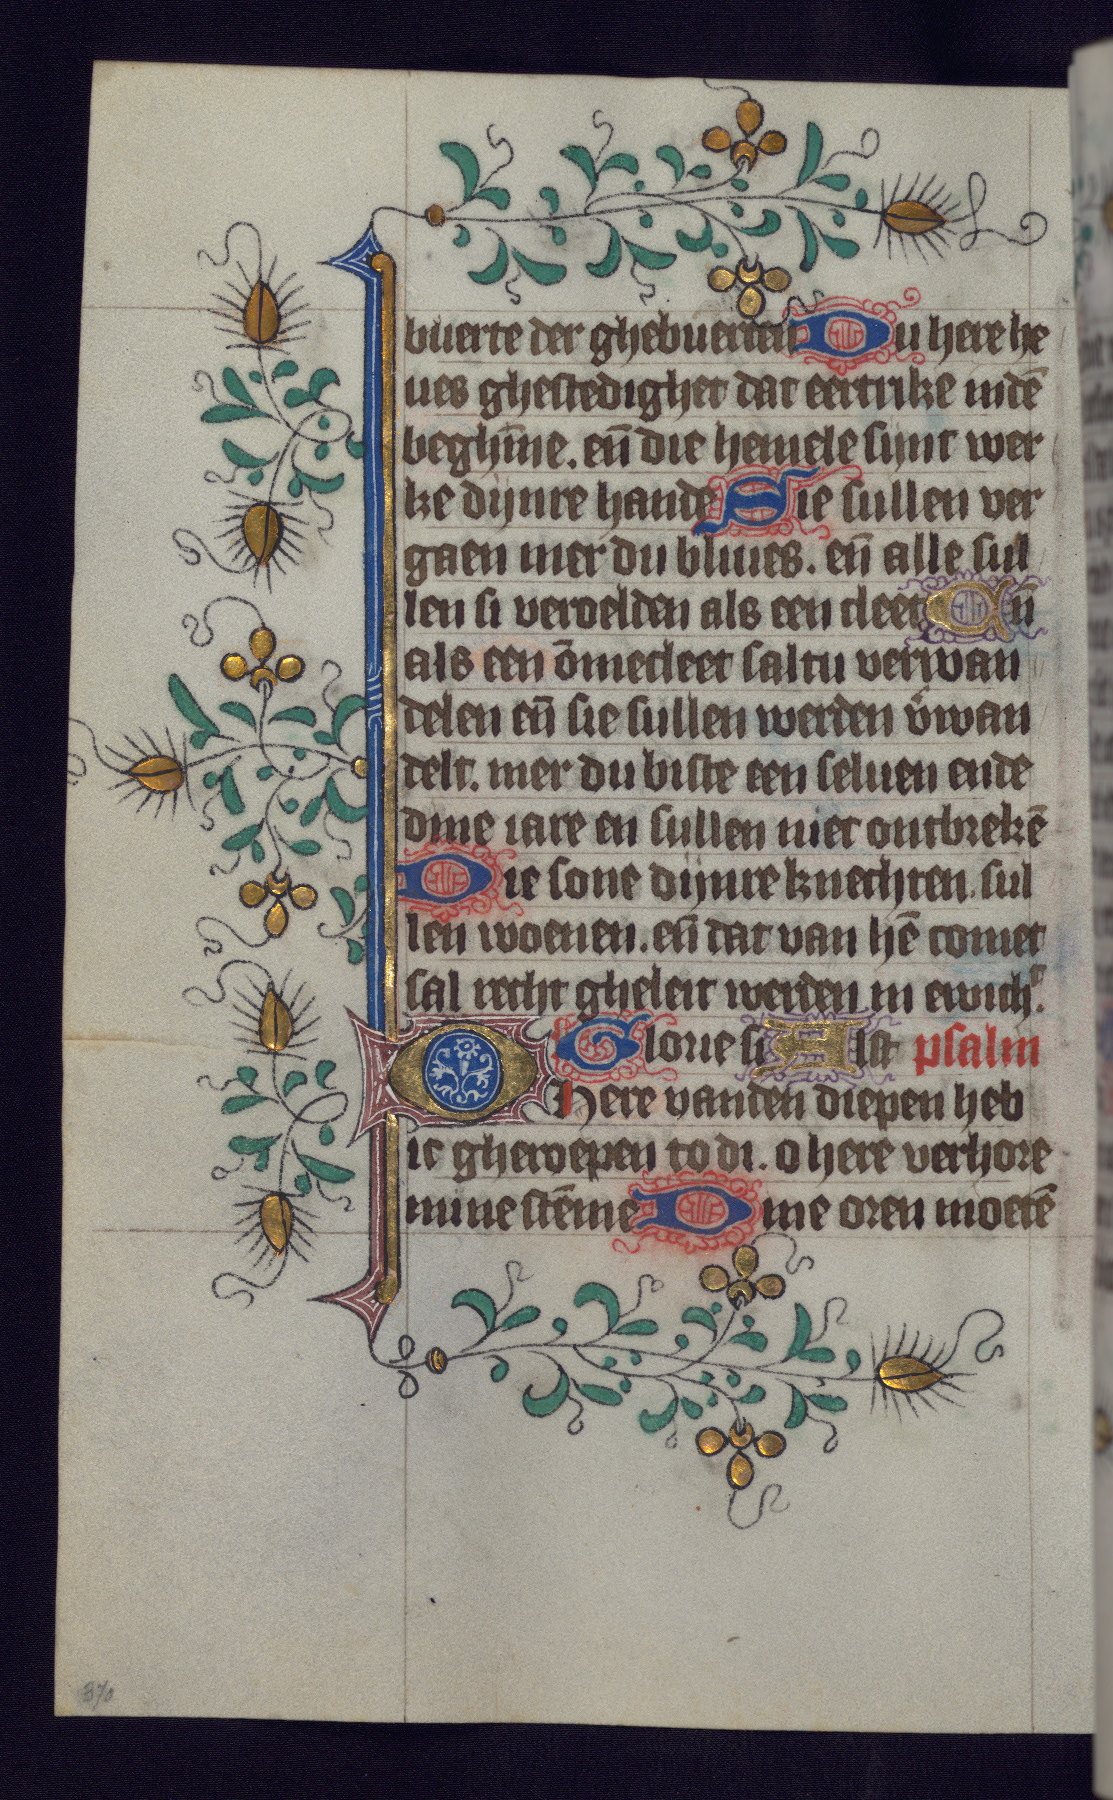 buerte der ghebuerten Du here he
ues ghestedighet dat eertrike indē
beghīne. eñ die hemele sijnt wer
ke dijnre hande Sie sullen ver
gaen mer du bliues. eñ alle sul
len si veroelden als een cleet Eñ
als een ōmecleet saltu verwan
delen eñ sie sullen werden v̄wan
delt. mer du biste een seluen ende
dine iare en sullen niet ontbrekē
Die sone dijnre knechten. sul
len woenen. eñ dat van hē comet
sal recht gheleit werden in ewich.
Glorie si Alst psalm
O Here vanden diepen heb
ic gheroepen to di. o here verhore
mine stēme Dine oren moetē
370